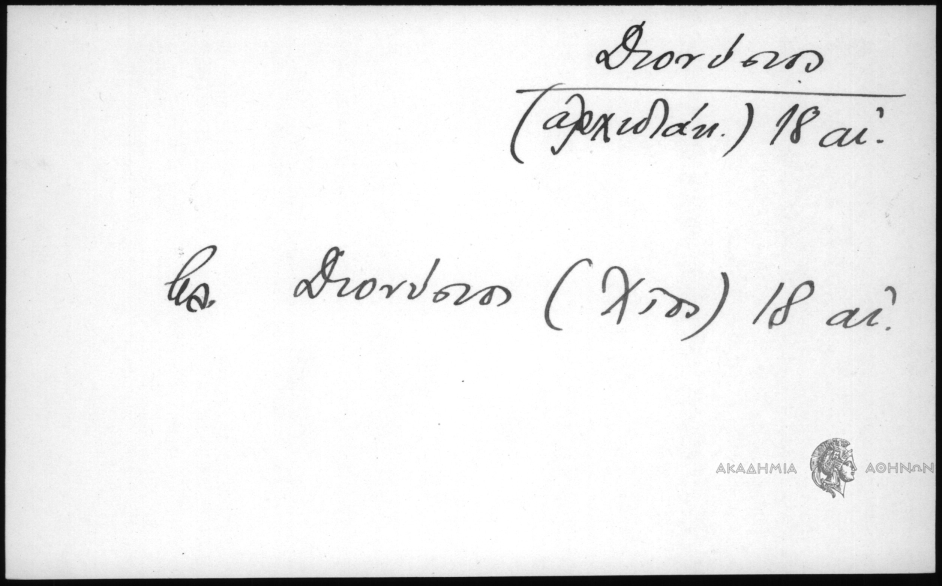 Διονύσιος
(ἀρχιδιάκ.) 18 αἰ.
βλ. Διονύσιος (Χῖος) 18 αἰ.
ΑΚΑΔΗΜΙΑ ΑΘΗΝΩΝ